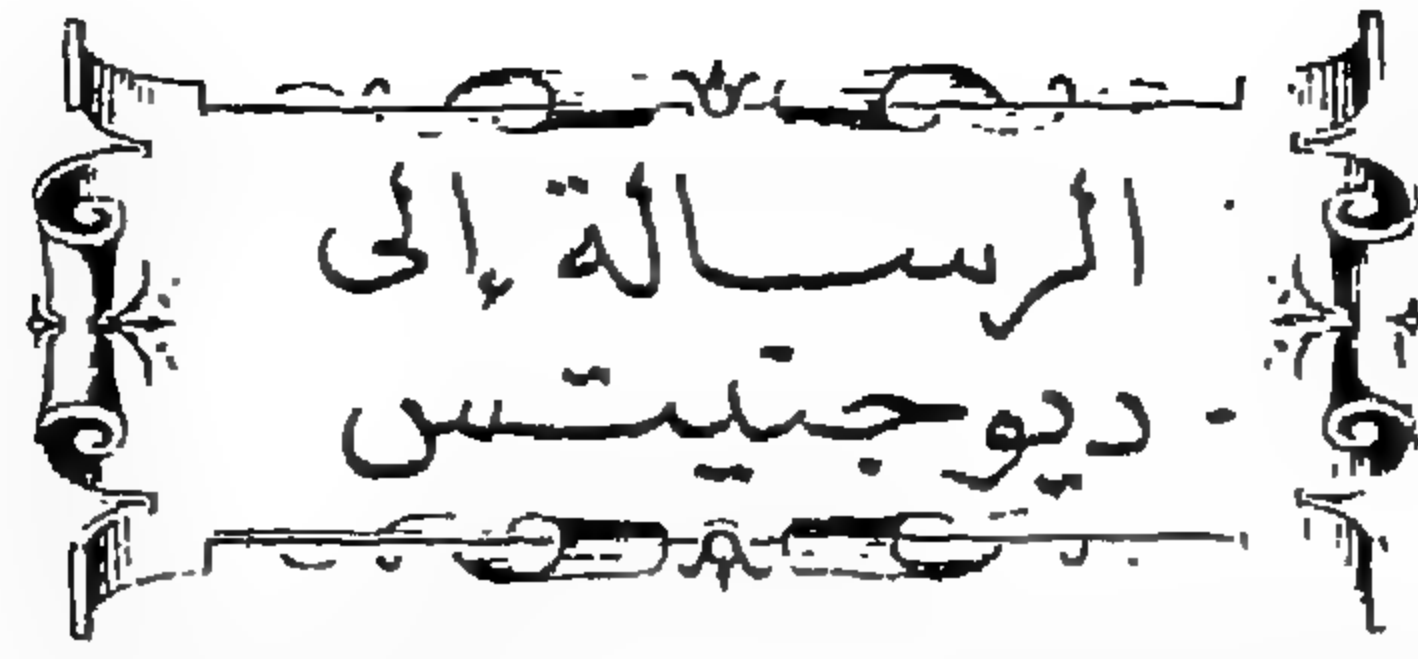 الرسالة إلى
ديوجنيتس